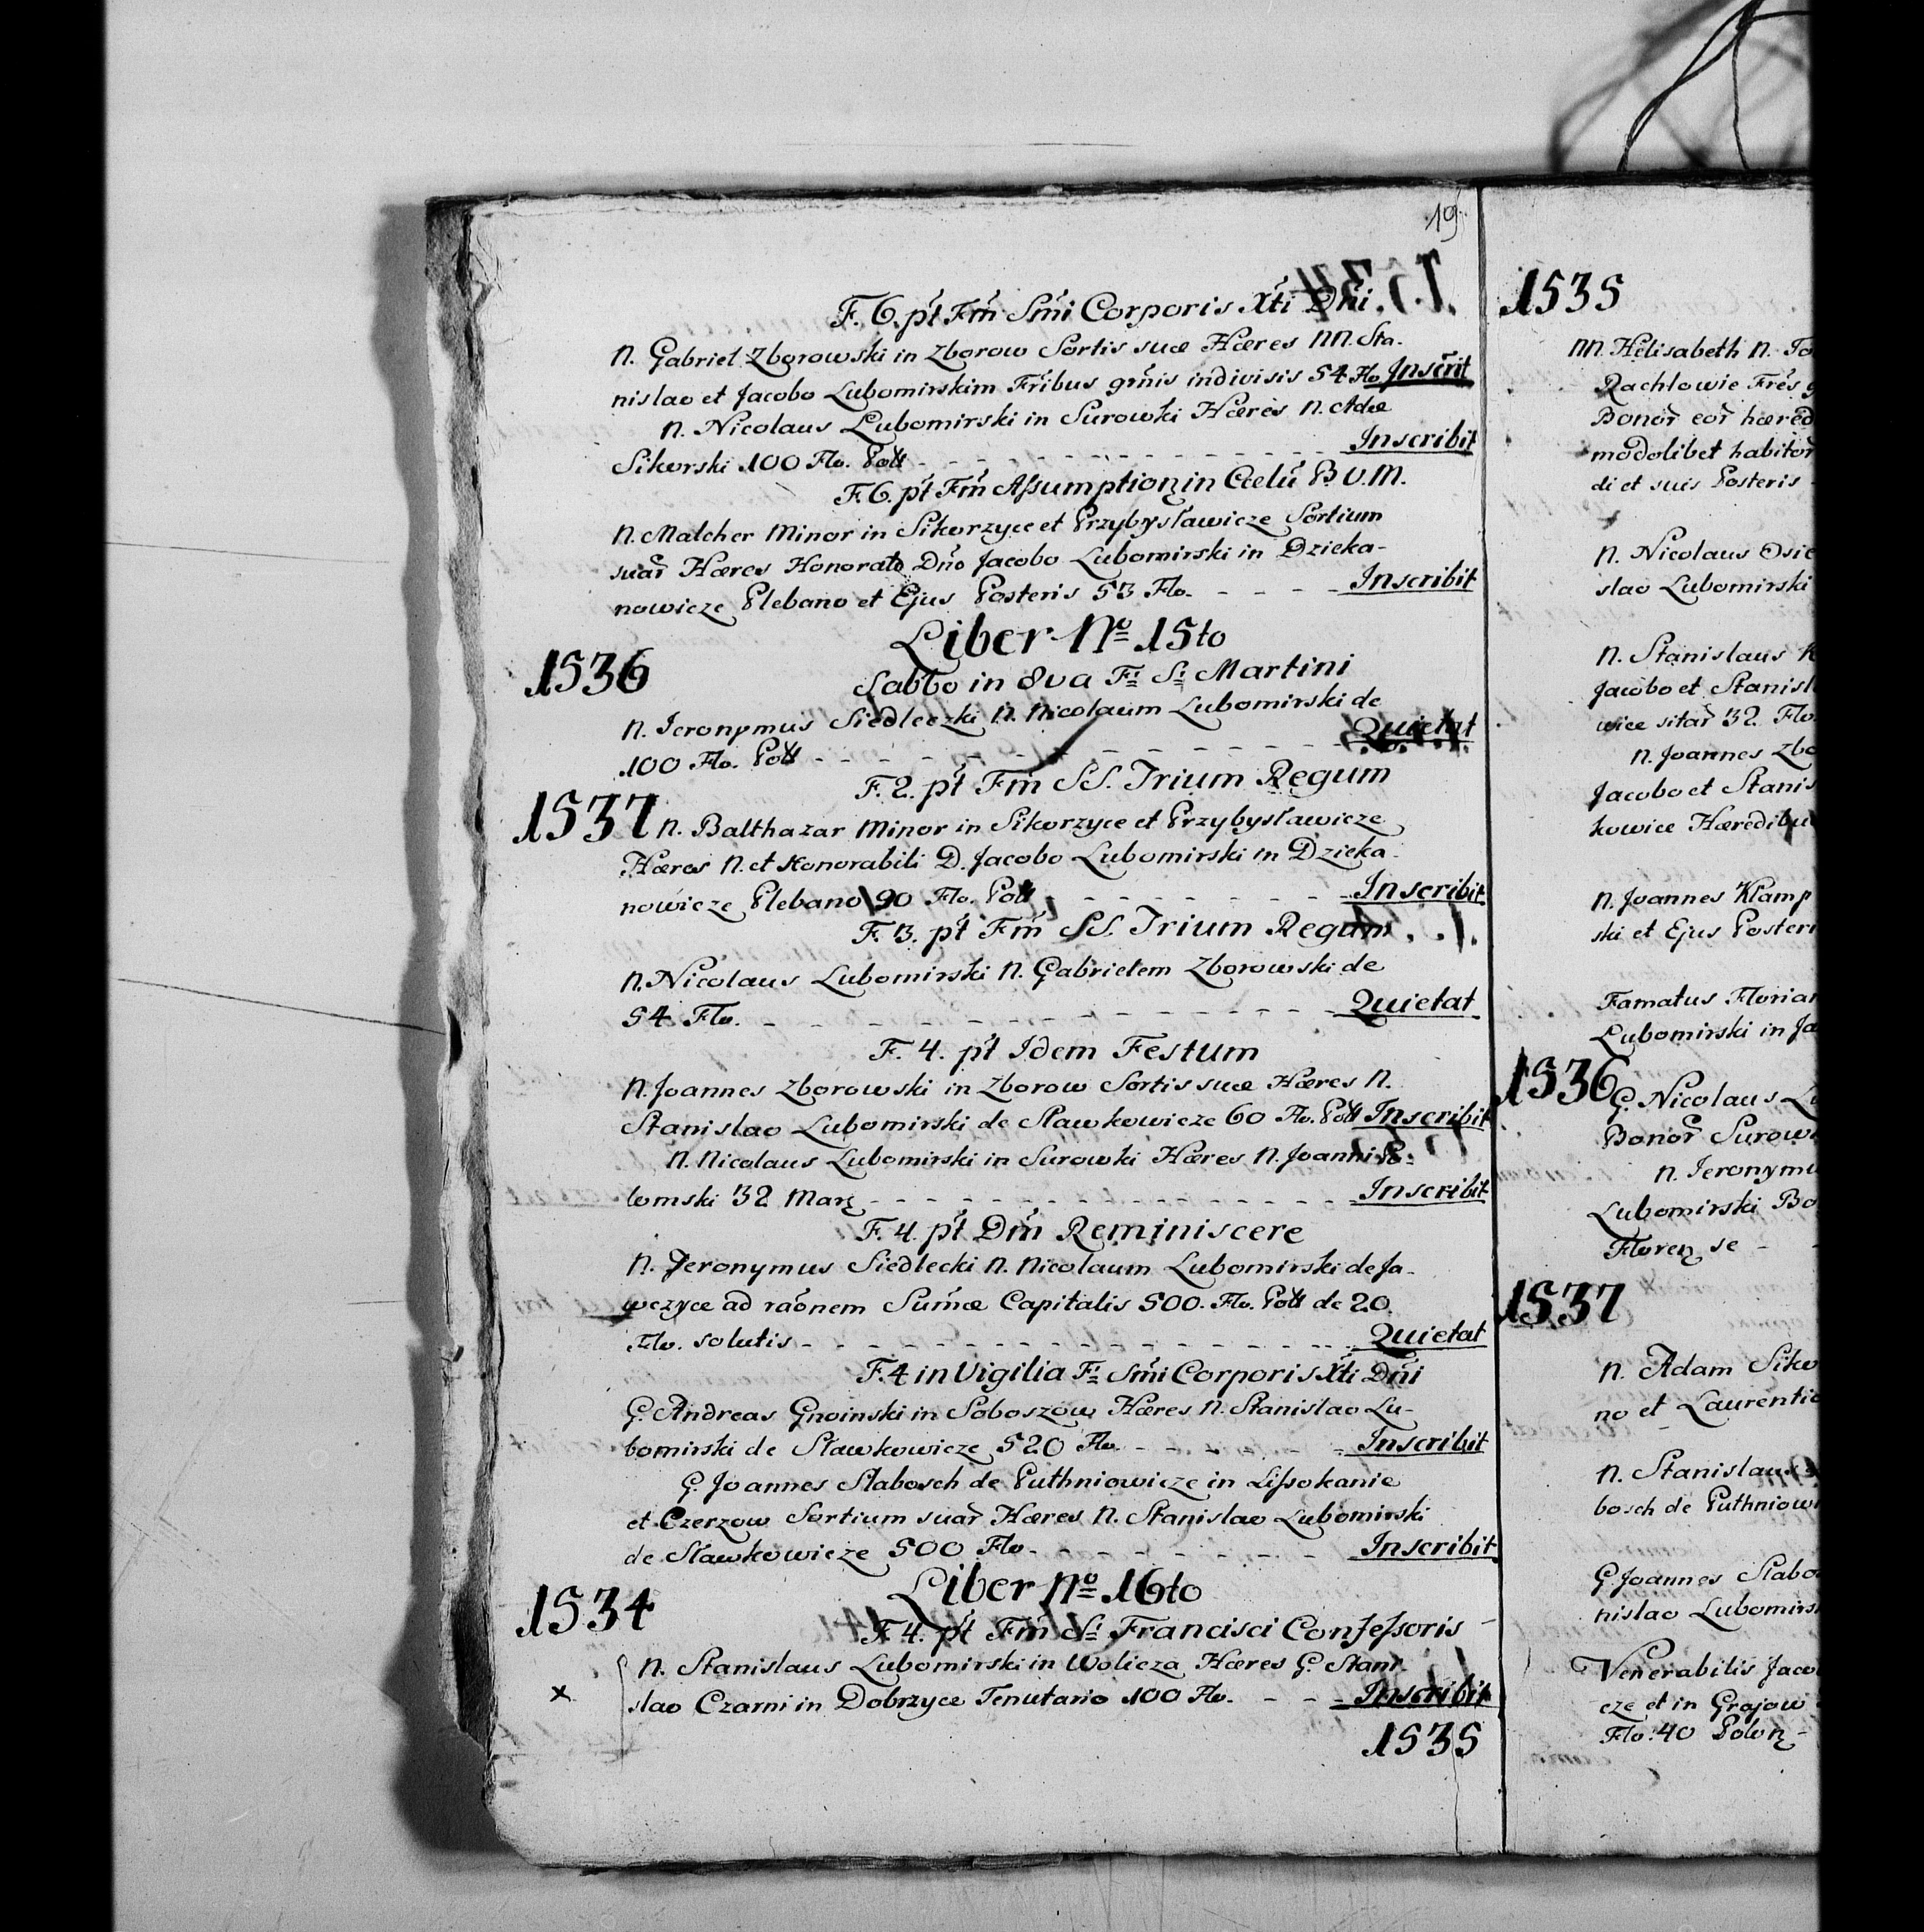 19
F. 6. pt Fm Smi Corporis Xti Dni
N. Gabriel Zborowski in Zborow Sortis suæ Hæres NN. Sta-
nislao et Jacobo Lubomirskim Fribus grnis indivisis 54 Flo Inscrit
N. Nicolaus Lubomirski in Surowki Hæres N. Adæ
Sikorski 100 Flo. Poll - - - Inscribit
F. 6. pt Fm Assumptionis in Cælu B.V.M.
N. Malcher Minor in Sikorzyce et Przybysławicze Sortium
suar Hæres Honorato Dno Jacobo Lubomirski in Dzieka-
nowicze Plebano et Ejus Posteris 53 Flo. - - - Inscribit
Liber No 15to
1536
Sabbo in 8va Fi Si Martini
N. Jeronymus Siedleczki N. Nicolaum Lubomirski de
100 Flo. Poll - - - Quietat
F. 2. pt Fm SS. Trium Regum
1537 N. Balthazar Minor in Sikorzyce et Przybysławicze
Hæres N. et Honorabili D. Jacobo Lubomirski in Dzieka-
nowicze Plebano 90 Flo. Poll - - - Inscribit
F. 3. pt Fm SS. Trium Regum
N. Nicolaus Lubomirski N. Gabrielem Zborowski de
54 Flo. - - - Quietat
F. 4. pt Idem Festum
N. Joannes Zborowski in Zborow Sortis suæ Hæres N.
Stanislao Lubomirski de Sławkowicze 60 Flo. Poll Inscribit
N. Nicolaus Lubomirski in Surowki Hæres N. Joanni
lomski 32 Marc - - - Inscribit
F. 4. pt Dm Reminiscere
N. Jeronymus Siedlecki N. Nicolaum Lubomirski de Ja-
wczyce ad raonem Sumæ Capitalis 500. Flo. Poll de 20
Flo. solutis - - - Quietat
F. 4 in Vigilia Fi Smi Corporis Xti Dni
G. Andreas Gnoinski in Soboszow Hæres N. Stanislao Lu-
bomirski de Sławkowicze 520 Flo. - - - Inscribit
G. Joannes Slabosch de Puthniowicze in Lissokanie
et Czerzow Sortium suar Hæres N. Stanislao Lubomirski
de Sławkowicze 500 Flo - - - Inscribit
Liber No 16to
1534
F 4. pt Fm Si Francisci Confessoris
N. Stanislaus Lubomirski in Wolicza Hæres G. Stani-
x slao Czarni in Dobrzyce Tenutario 100 Flo. - - - Inscribit
1535
1535
NN. Helisabeth N.
Rachlowie Fres
Bonor eor hæred
modolibet habitor
di et suis Posteris
N. Nicolaus Osie
slao Lubomirski
N. Stanislaus
Jacobo et Stanisl
wice sitar 32. Flo.
N. Joannes Zbo
Jacobo et Stanis
kowice Hæredibus
N. Joannes Klamp
ski et Ejus Posteri
Famatus Florian
Lubomirski in Ja
1536 G. Nicolaus Lu
Bonor Surow
N. Jeronymu
Lubomirski Bo
Floren se -
1537
N. Adam Siko
no et Laurentio
N. Stanislaus
bosch de Puthniow
G. Joannes Slabo
nislao Lubomirs
Venerabilis Jaco
cze et in Grajow
Flo. 40 Polon -